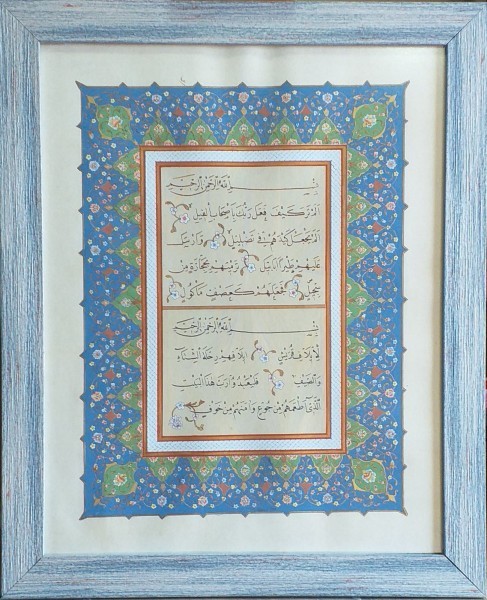 بسم الله الرحمن الرحيم
الم تر كيف فعل ربك باصحاب الفيل
الم يجعل كيدهم في تضليل وارسل
عليهم طيرا ابابيل ترميهم بحجارة من
سجيل فجعلهم كعصف ماكول
بسم الله الرحمن الرحيم
لايلاف قريش ايلافهم رحلة الشتاء
والصيف فليعبدوا رب هذا البيت
الذي اطعمهم من جوع وآمنهم من خوف